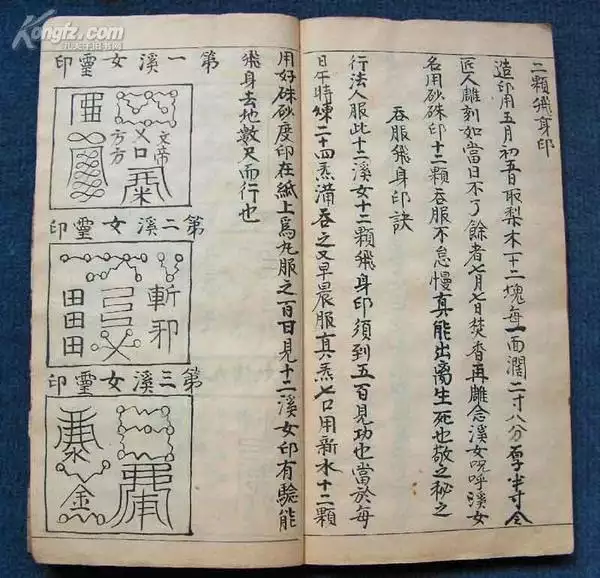 二顆飛身印
造印用五月初五日取梨木十二塊每一面濶二寸八分厚半寸令
匠人雕刻如當日不了餘者七月七日焚香再雕念溪女呪呼溪女
名用砂硃印十二顆吞服不怠慢真能出离生死也敬之秘之
吞服飛身印訣
行法人服此十二溪女十二顆飛身印須到五百見功也當於每
日午時煉二十四炁滿吞之又早晨服真炁七口用新水十二顆
用好硃砂度印在紙上爲丸服之百日見十二溪女印有驗能
飛身去地數尺而行也
第一溪女靈印
文帝
方方
第二溪女靈印
斬邪
田田田
第三溪女靈印
金
Kongfz.com